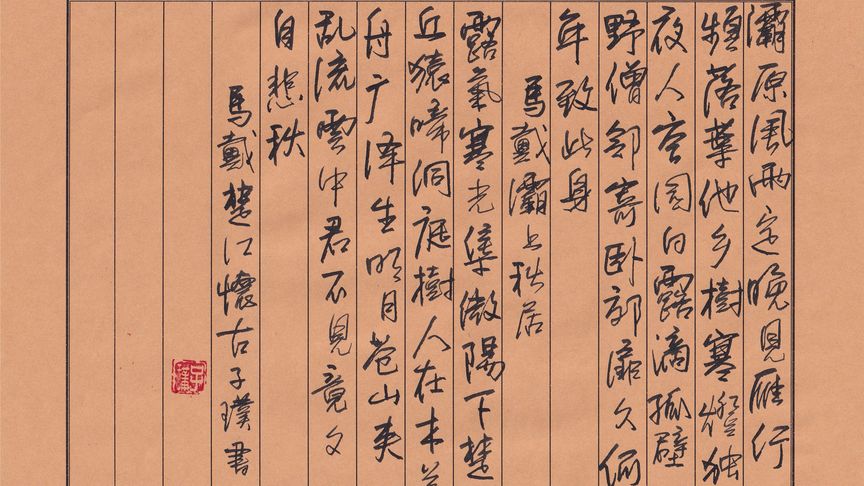 灞原风雨定晚見雁行
頻落葉他乡樹寒燈独
夜人空園白露滴孤壁
野僧邻寄卧郊扉久何
年致此身
馬戴灞上秋居
露氣寒光集微陽下楚
丘猿啼洞庭樹人在木兰
舟广泽生明月苍山夹
乱流雲中君不見竟夕
自悲秋
馬戴楚江懷古子璞書